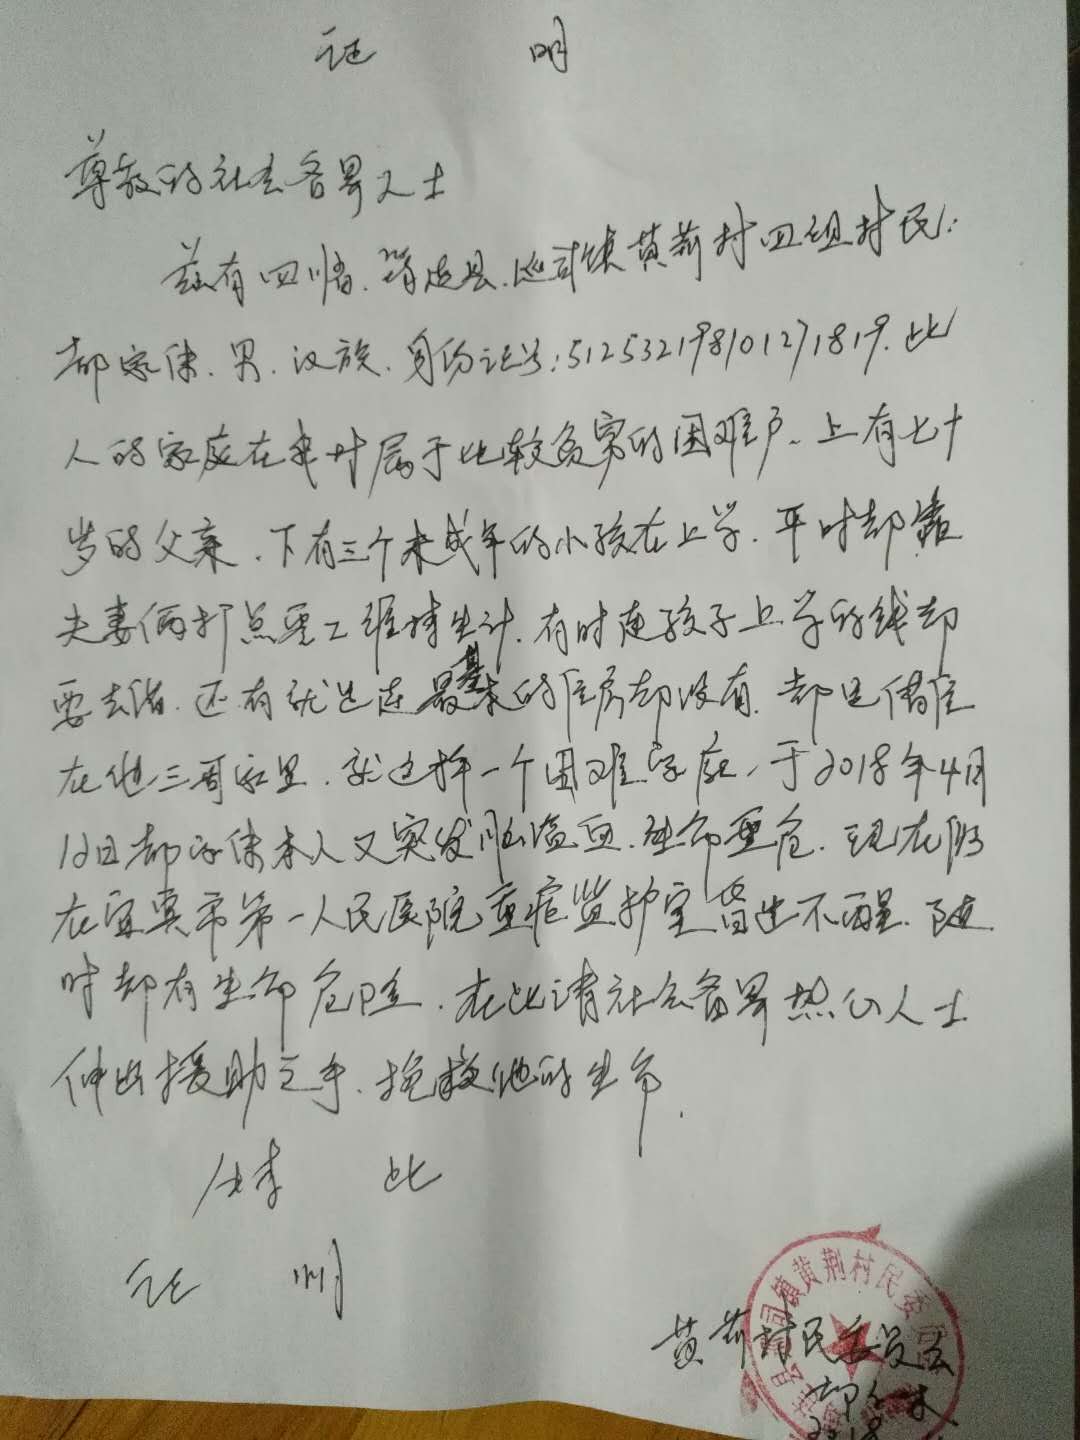 证 明
尊敬的社会各界人士
兹有四川省、筠连县、巡司镇黄荆村四组村民:
郝家保、男、汉族、身份证号:512532198101271819.此
人的家庭在我村属于比较贫穷的困难户、上有七十
岁的父亲、下有三个未成年的小孩在上学、平时都靠
夫妻俩打点零工维持生计、有时连孩子上学的钱都
要去借、还有就是连最基本的住房都没有、都是借住
在他三哥家里、就这样一个困难家庭、于2018年4月
12日郝家保本人又突发脑溢血、生命垂危、现在仍
在宜宾市第一人民医院重症监护室昏迷不醒、随
时都有生命危险、在此请社会各界热心人士
伸出援助之手、挽救他的生命.
特 此
证 明
黄荆村民委员会
2018
司镇黄荆村民委员会